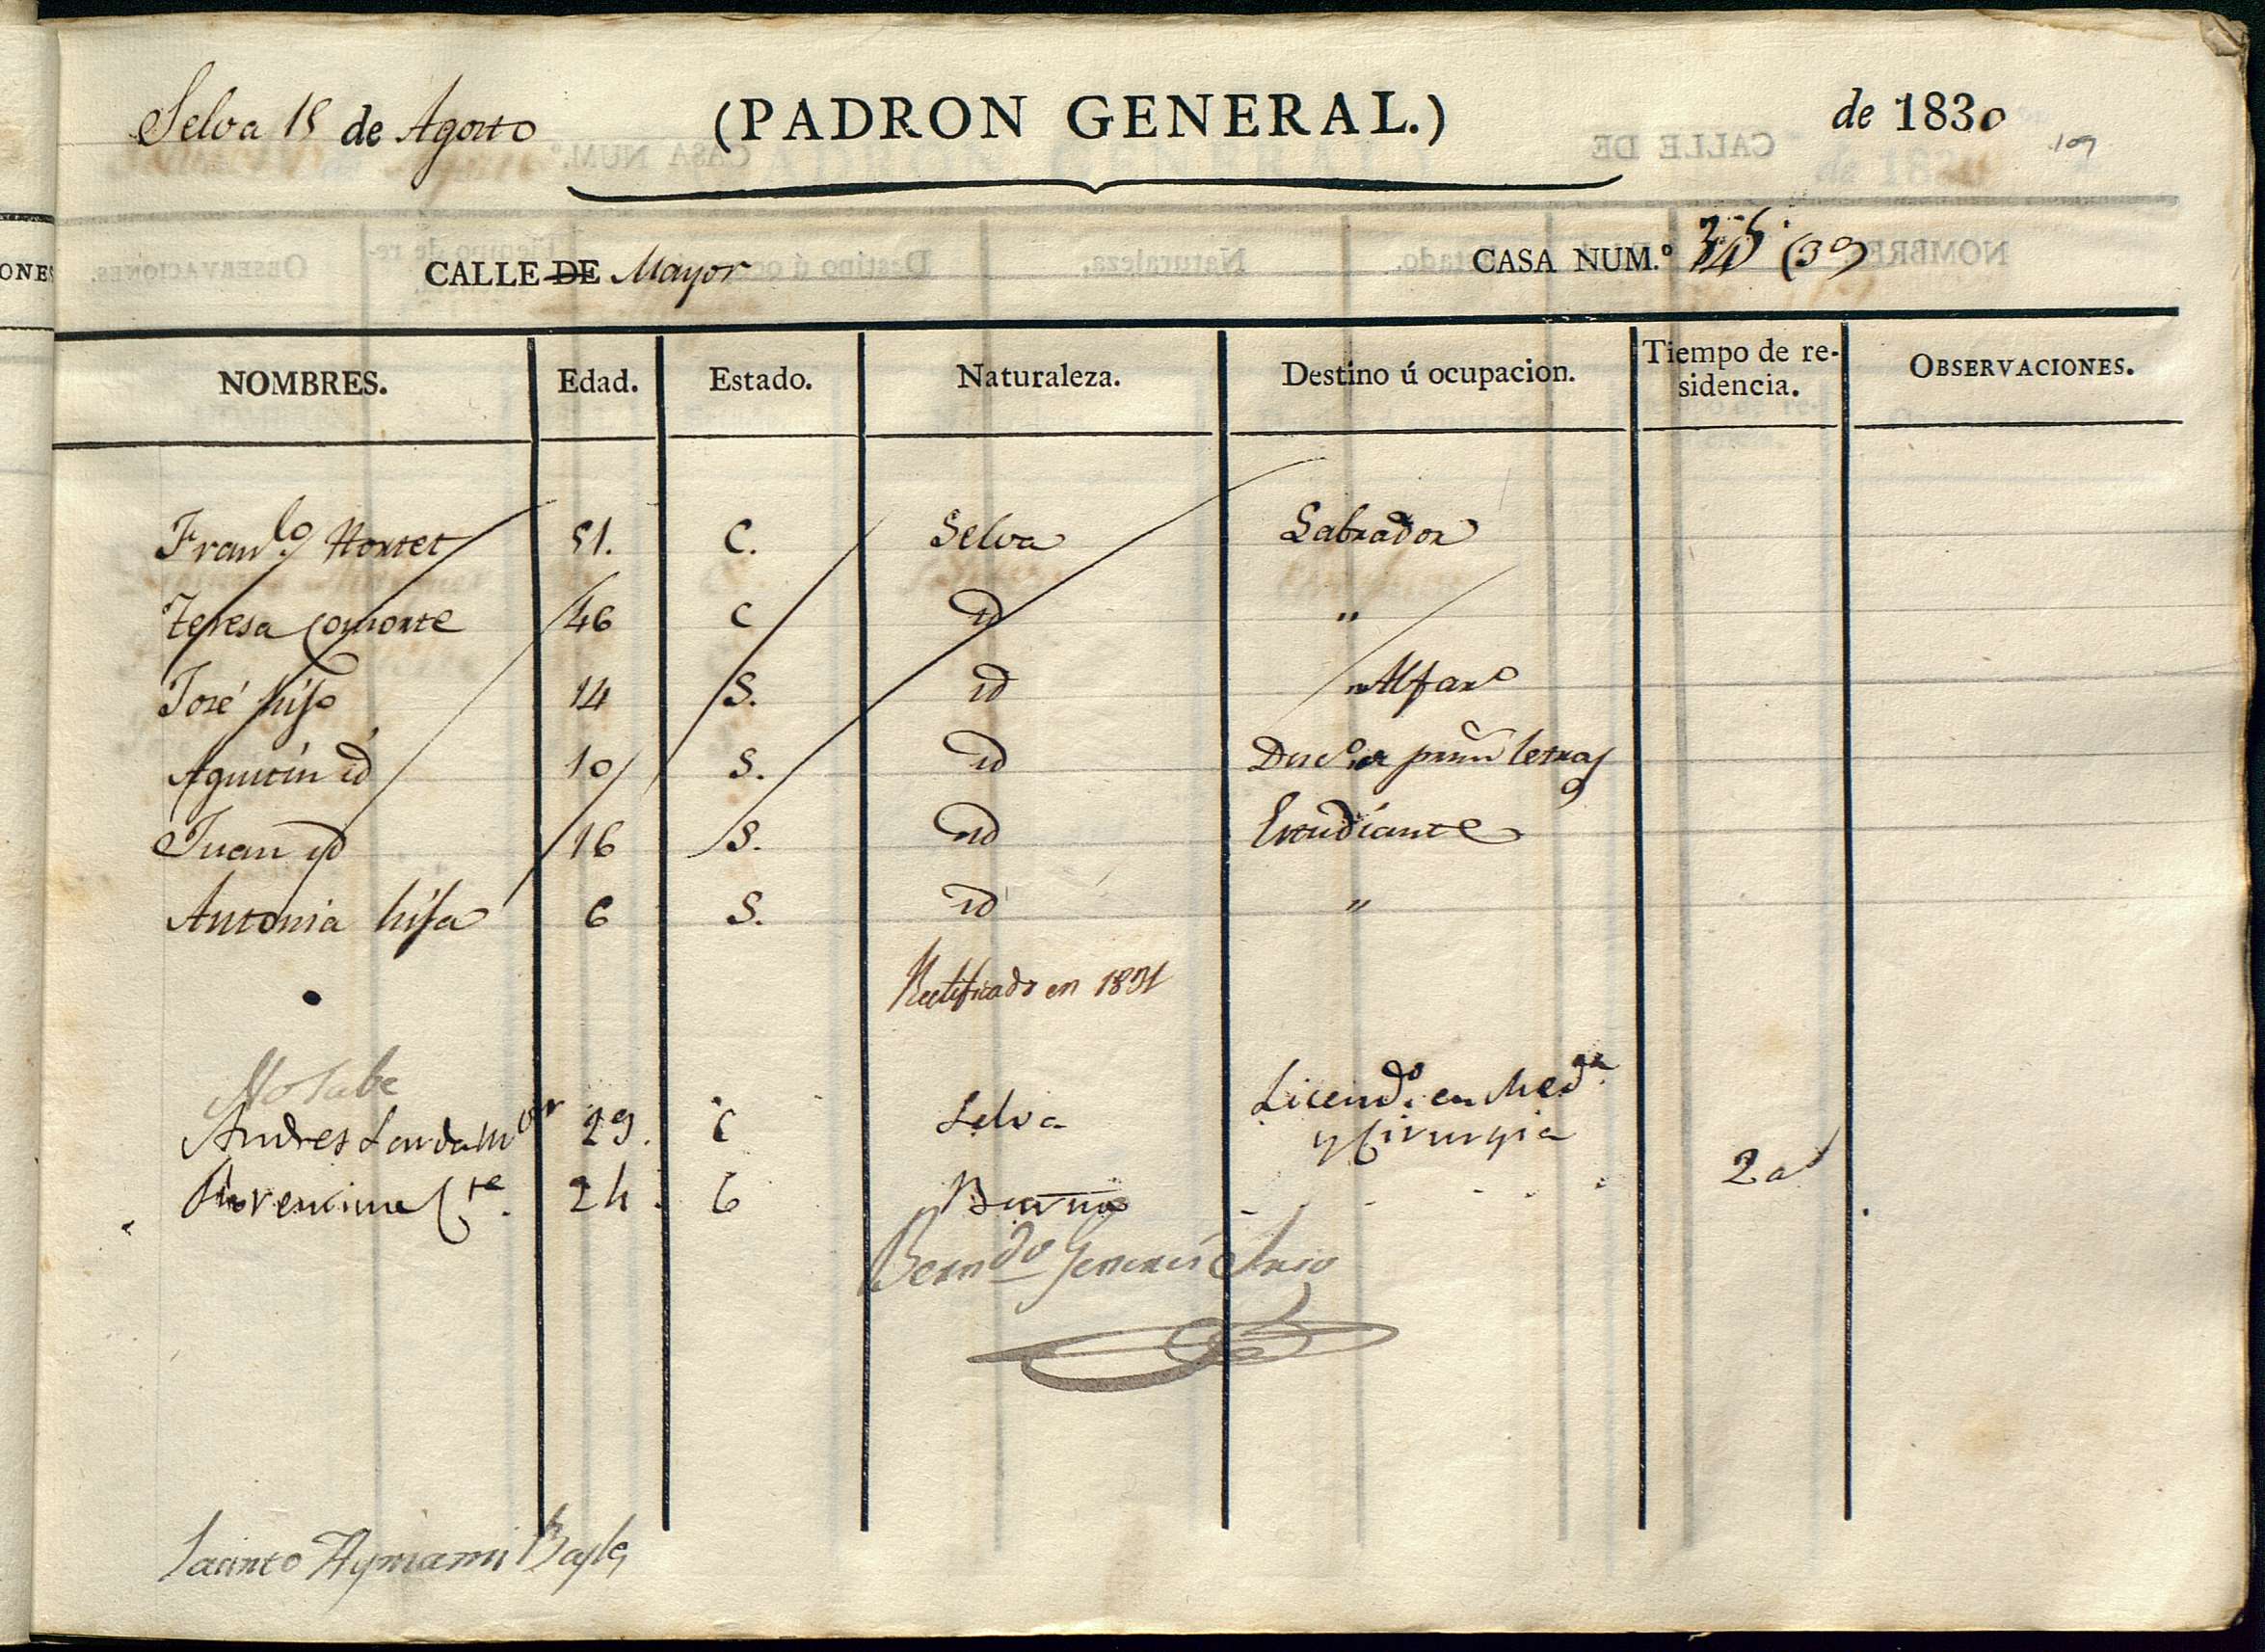 Selva 18 de Agosto (PADRON GENERAL.) de 1830
109
CALLE DE Mayor CASA NUM.º 35 (39)
NOMBRES. Edad. Estado. Naturaleza. Destino ú ocupacion. Tiempo de residencia. OBSERVACIONES.
Fran.co Hortet 51. C. Selva Labrador
Teresa Consorte 46 C id "
José hijo 14 S. id Alfaro
Agustin id 10 S. id letras
Juan id 16 S. id Estudiante
Antonia hija 6 S. id "
Rectificado en 1831
No sabe
Andres 29. C Selva Licendo. en Meda.
y Cirurgia
Cte. 24 C 2 a
Berndo
Jacinto Aymami Bayle